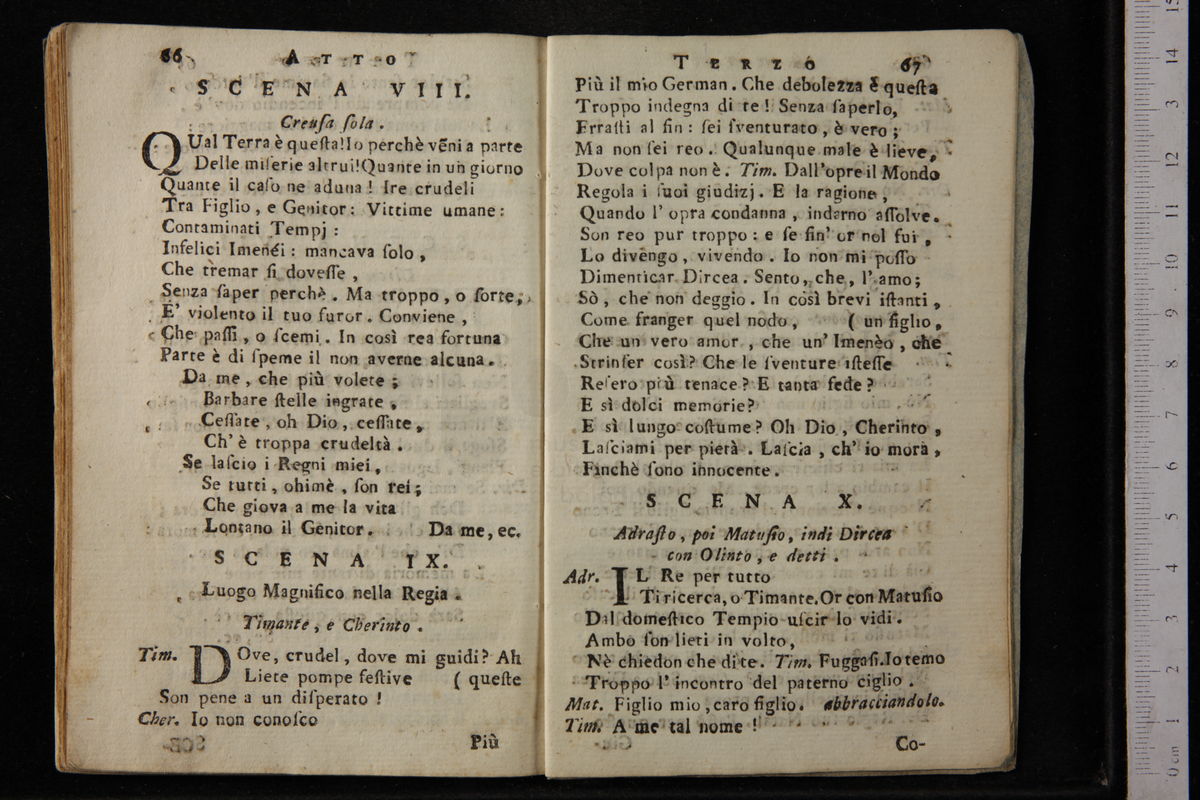 66
ATTO
SCENA VIII.
Creuſa ſola.
QUal Terra è queſta! Io perchè vẽni a parte
Delle miſerie altrui! Quante in un giorno
Quante il caſo ne aduna! Ire crudeli
Tra Figlio, e Genitor: Vittime umane:
Contaminati Tempj:
Infelici Imenéi: mancava ſolo,
Che tremar ſi doveſſe,
Senza ſaper perchè. Ma troppo, o ſorte,
E' violento il tuo furor. Conviene,
Che paſſi, o ſcemi. In così rea fortuna
Parte è di ſpeme il non averne alcuna.
Da me, che più volete;
Barbare ſtelle ingrate,
Ceſſate, oh Dio, ceſſate,
Ch' è troppa crudeltà.
Se laſcio i Regni miei,
Se tutti, ohimè, ſon rei;
Che giova a me la vita
Lontano il Genitor. Da me, ec.
SCENA IX.
Luogo Magnifico nella Regia.
Timante, e Cherinto.
Tim. DOve, crudel, dove mi guidi? Ah
Liete pompe feſtive ( queſte
Son pene a un diſperato!
Cher. Io non conoſco
Più
TERZO
67
Più il mio German. Che debolezza è queſta
Troppo indegna di te! Senza ſaperlo,
Erraſti al fin: ſei ſventurato, è vero;
Ma non ſei reo. Qualunque male è lieve,
Dove colpa non è. Tim. Dall'opre il Mondo
Regola i ſuoi giudizj. E la ragione,
Quando l' opra condanna, indarno aſſolve.
Son reo pur troppo: e ſe fin' or nol fui,
Lo divengo, vivendo. Io non mi poſſo
Dimenticar Dircea. Sento, che, l' amo;
Sò, che non deggio. In così brevi iſtanti,
Come franger quel nodo, ( un figlio,
Che un vero amor, che un' Imenèo, che
Strinſer così? Che le ſventure iſteſſe
Reſero più tenace? E tanta fede?
E sì dolci memorie?
E sì lungo coſtume? Oh Dio, Cherinto,
Laſciami per pietà. Laſcia, ch' io mora,
Finchè ſono innocente.
SCENA X.
Adraſto, poi Matuſio, indi Dircea
con Olinto, e detti.
Adr. IL Re per tutto
Ti ricerca, o Timante. Or con Matuſio
Dal domeſtico Tempio uſcir lo vidi.
Ambo ſon lieti in volto,
Nè chiedon che di te. Tim. Fuggaſi. Io temo
Troppo l' incontro del paterno ciglio.
Mat. Figlio mio, caro figlio. abbracciandolo.
Tim. A me tal nome!
Co-